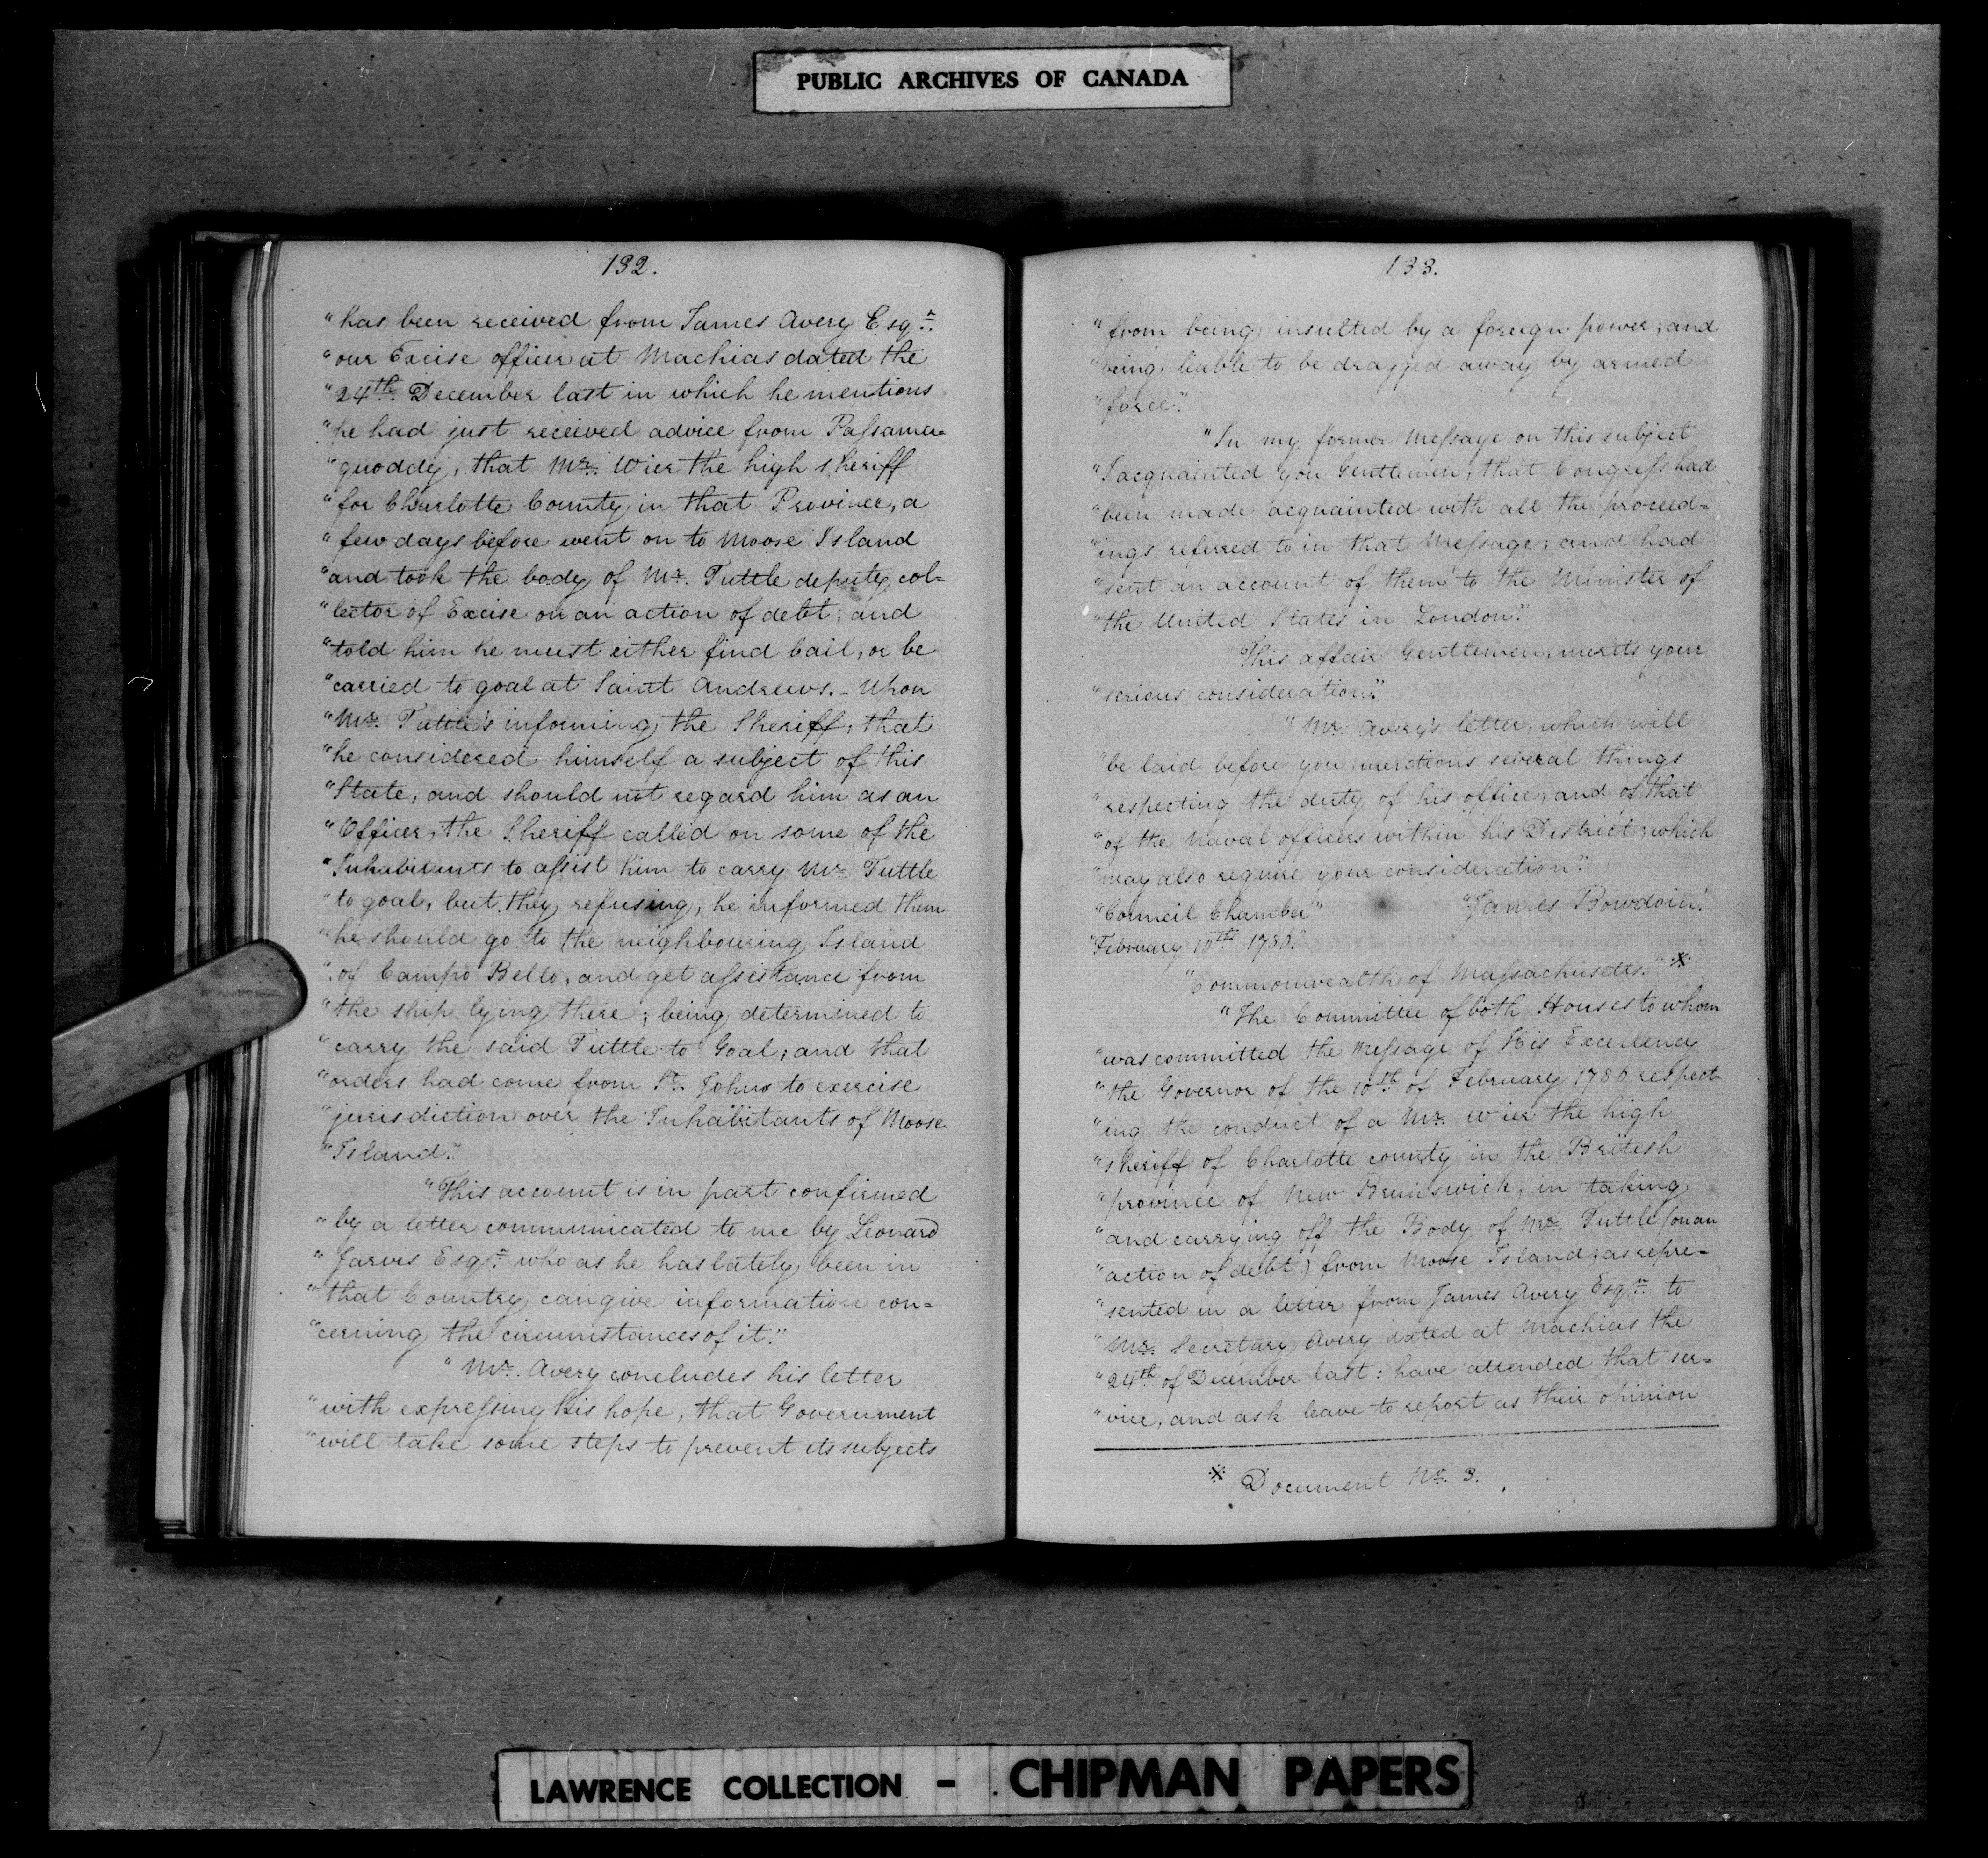 PUBLIC ARCHIVES OF CANADA
132.
"has been received from James Avery Esqr.
"our Excise officer at Machias dated the
"24th. December last in which he mentions
"he had just received advice from Passama=
"quoddy, that Mr. Wier the high sheriff
"for Charlotte County in that Province, a
"few days before went on to Moose Island
"and took the body of Mr. Tuttle deputy col=
"lector of Excise on an action of debt; and
"told him he must either find bail, or be
"carried to goal at Saint Andrews. - Upon
"Mr. Tuttle's informing the Sheriff, that
"he considered himself a subject of this
"State, and should not regard him as an
"Officer, the Sheriff called on some of the
"Inhabitants to assist him to carry Mr. Tuttle
"to goal, but they refusing, he informed them
"he should go to the neighbouring Island
"of Campo Bello, and get assistance from
"the ship lying there; being determined to
"carry the said Tuttle to Goal; and that
"orders had come from St. Johns to exercise
"jurisdiction over the Inhabitants of Moose
"Island."
"This account is in part confirmed
"by a letter communicated to me by Leonard
"Jarvis Esqr. who as he has lately been in
"that Country can give information con=
"cerning the circumstances of it."
"Mr. Avery concludes his letter
"with expressing his hope, that Government
"will take some steps to prevent its subjects
133.
"from being insulted by a foreign power, and
"being liable to be dragged away by armed
"force."
"In my former Message on this subject
"I acquainted you Gentlemen, that Congress had
"been made acquainted with all the proceed=
"ings referred to in that Message; and had
"sent an account of them to the Minister of
"the United States in London."
This affair Gentlemen, merits your
"serious consideration."
"Mr. Avery's letter, which will
"be laid before you mentions several things
"respecting the duty of his office, and of that
"of the Naval officers within his District, which
"may also require your consideration."
"Council Chamber" "James Bowdoin."
"February 10th. 1786."
"Commonwealth of Massachusetts." *
"The Committee of both Houses to whom
"was committed the Message of His Excellency
"the Governor of the 10th of February 1786 respect=
"ing the conduct of a Mr. Wier the high
"sheriff of Charlotte county in the British
"province of New Brunswick, in taking
"and carrying off the Body of Mr. Tuttle (on an
"action of debt) from Moose Island; as repre=
"sented in a letter from James Avery Esqr. to
"Mr. Secretary Avery dated at Machias the
"24th of December last: have attended that ser=
"vice, and ask leave to report as their opinion
* Document No. 3.
LAWRENCE COLLECTION - CHIPMAN PAPERS